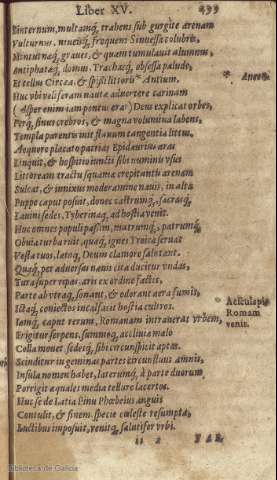 Liber XV. 499
Linternum, multamq́; trahens sub gurgite arenam
Vulturnus, niueisq́; frequens Sinuessa colubris,
Minturnæq́; graues, & quam tumulauit alumnus,
Antiphatæq́; domus, Trachasq́; obsessa palude,
Et tellus Circæa, & spissi littoris Antium.
Huc vbi veliferam nautæ aduertere carinam
(Asper enim iam pontus erat) Deus explicat orbes,
Perq́; sinus crebros, & magna volumina labens,
Templa parentis init flauum tangentia littus.
Aequore placato patrias Epidaurius aras
Linquit, & hospitio iuncti sibi numinis vsus
Littoream tractu squamæ crepitantis arenam
Sulcat, & innixus moderamine nauis, in alta
Puppe caput posuit, donec castrumq́;, sacrasq́;
Lauini sedes, Tyberinaq́; ad hostia venit.
Huc omnes populi passim, matrumq́;, patrumq́;
Obuia turba ruit, quæq́; ignes Troica seruat
Vesta tuos, lætoq́; Deum clamore salutant.
Quaq́; per aduersas nauis cita ducitur vndas,
Tura super ripas aris ex ordine factis,
Parte ab vtraq́; sonant, & odorant aera fumis,
Ictaq́; coniectos incalfacit hostia cultros.
Iamq́; caput rerum, Romanam intrauerat vrbem,
Erigitur serpens, summoq́; acclinia malo
Colla mouet: sedesq́; sibi circunspicit aptas.
Scinditur in geminas partes circunfluus amnis,
Insula nomen habet, laterumq́; à parte duorum
Porrigit æquales media tellure lacertos.
Huc se de Latia Pinu Phœbeius anguis
Contulit, & finem, specie cœleste resumpta,
Luctibus imposuit, venitq́; salutifer vrbi.
Aesculapius
Romam
venit.
Biblioteca de Galicia